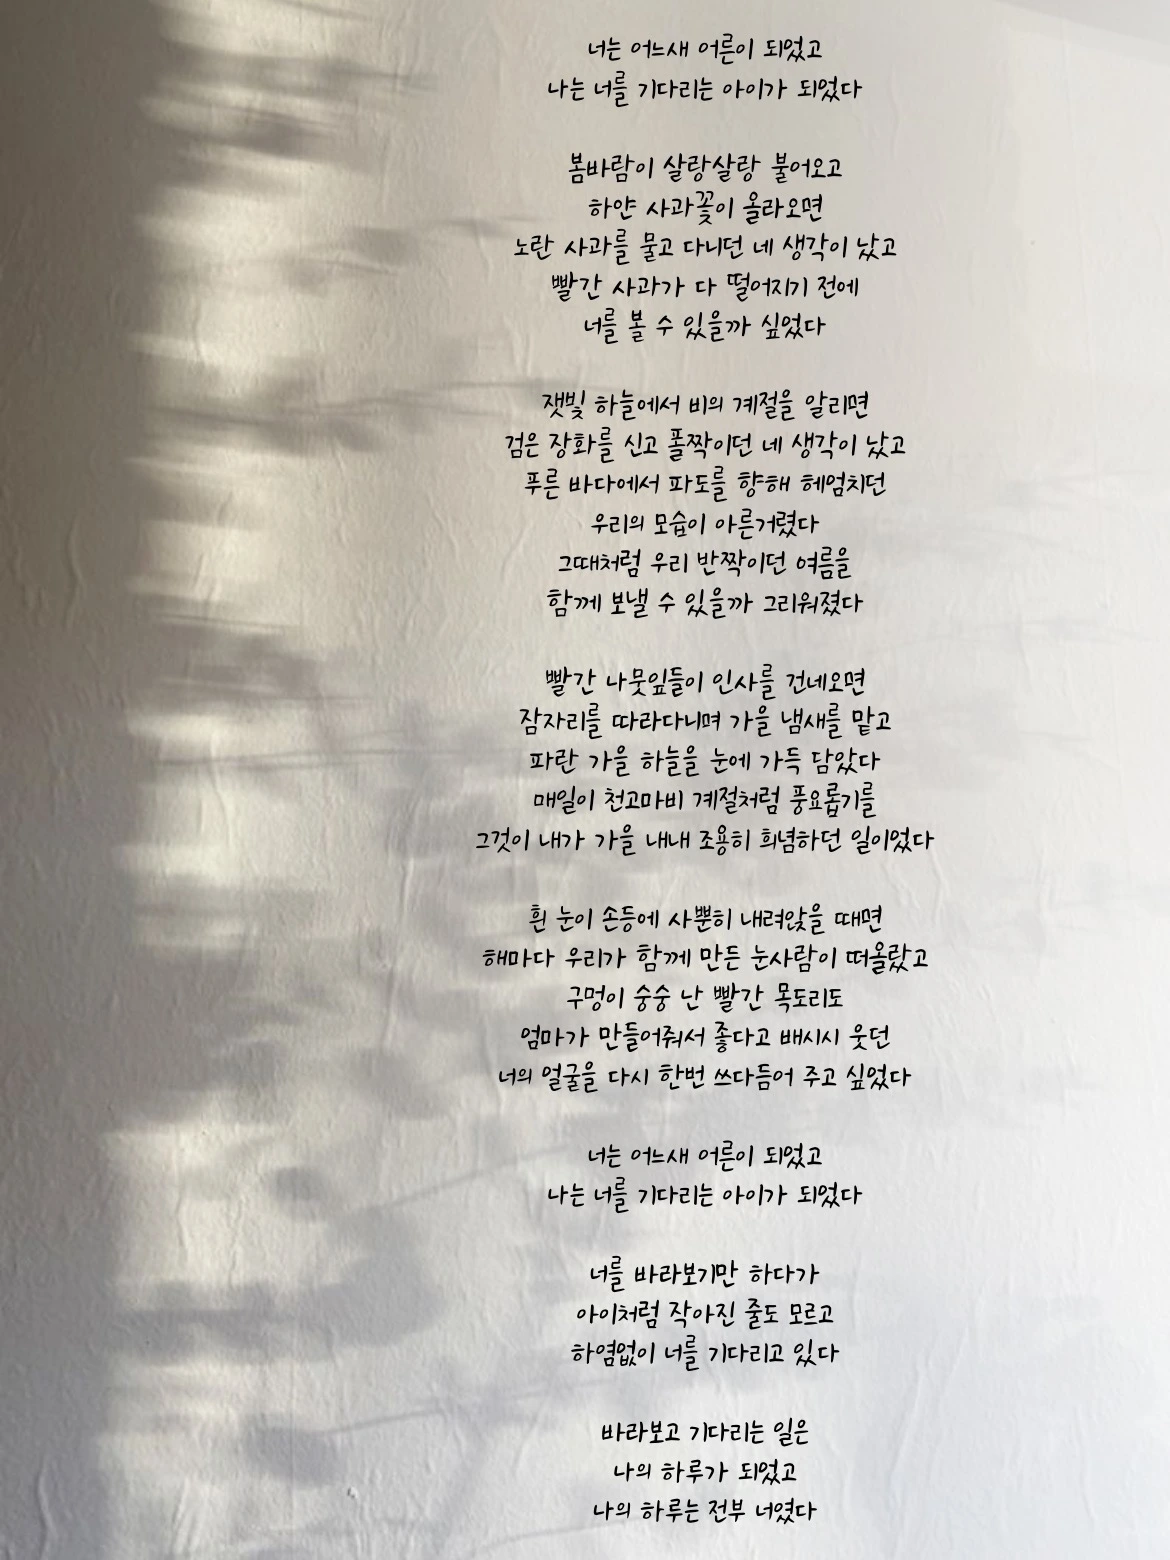 너는 어느새 어른이 되었고
나는 너를 기다리는 아이가 되었다
봄바람이 살랑살랑 불어오고
하얀 사과꽃이 올라오면
노란 사과를 물고 다니던 네 생각이 났고
빨간 사과가 다 떨어지기 전에
너를 볼 수 있을까 싶었다
잿빛 하늘에서 비의 계절을 알리면
검은 장화를 신고 폴짝이던 네 생각이 났고
푸른 바다에서 파도를 향해 헤엄치던
우리의 모습이 아른거렸다
그때처럼 우리 반짝이던 여름을
함께 보낼 수 있을까 그리워졌다
빨간 나뭇잎들이 인사를 건네오면
잠자리를 따라다니며 가을 냄새를 맡고
파란 가을 하늘을 눈에 가득 담았다
매일이 천고마비 계절처럼 풍요롭기를
그것이 내가 가을 내내 조용히 희념하던 일이었다
흰 눈이 손등에 사뿐히 내려앉을 때면
해마다 우리가 함께 만든 눈사람이 떠올랐고
구멍이 숭숭 난 빨간 목도리도
엄마가 만들어줘서 좋다고 배시시 웃던
너의 얼굴을 다시 한번 쓰다듬어 주고 싶었다
너는 어느새 어른이 되었고
나는 너를 기다리는 아이가 되었다
너를 바라보기만 하다가
아이처럼 작아진 줄도 모르고
하염없이 너를 기다리고 있다
바라보고 기다리는 일은
나의 하루가 되었고
나의 하루는 전부 너였다